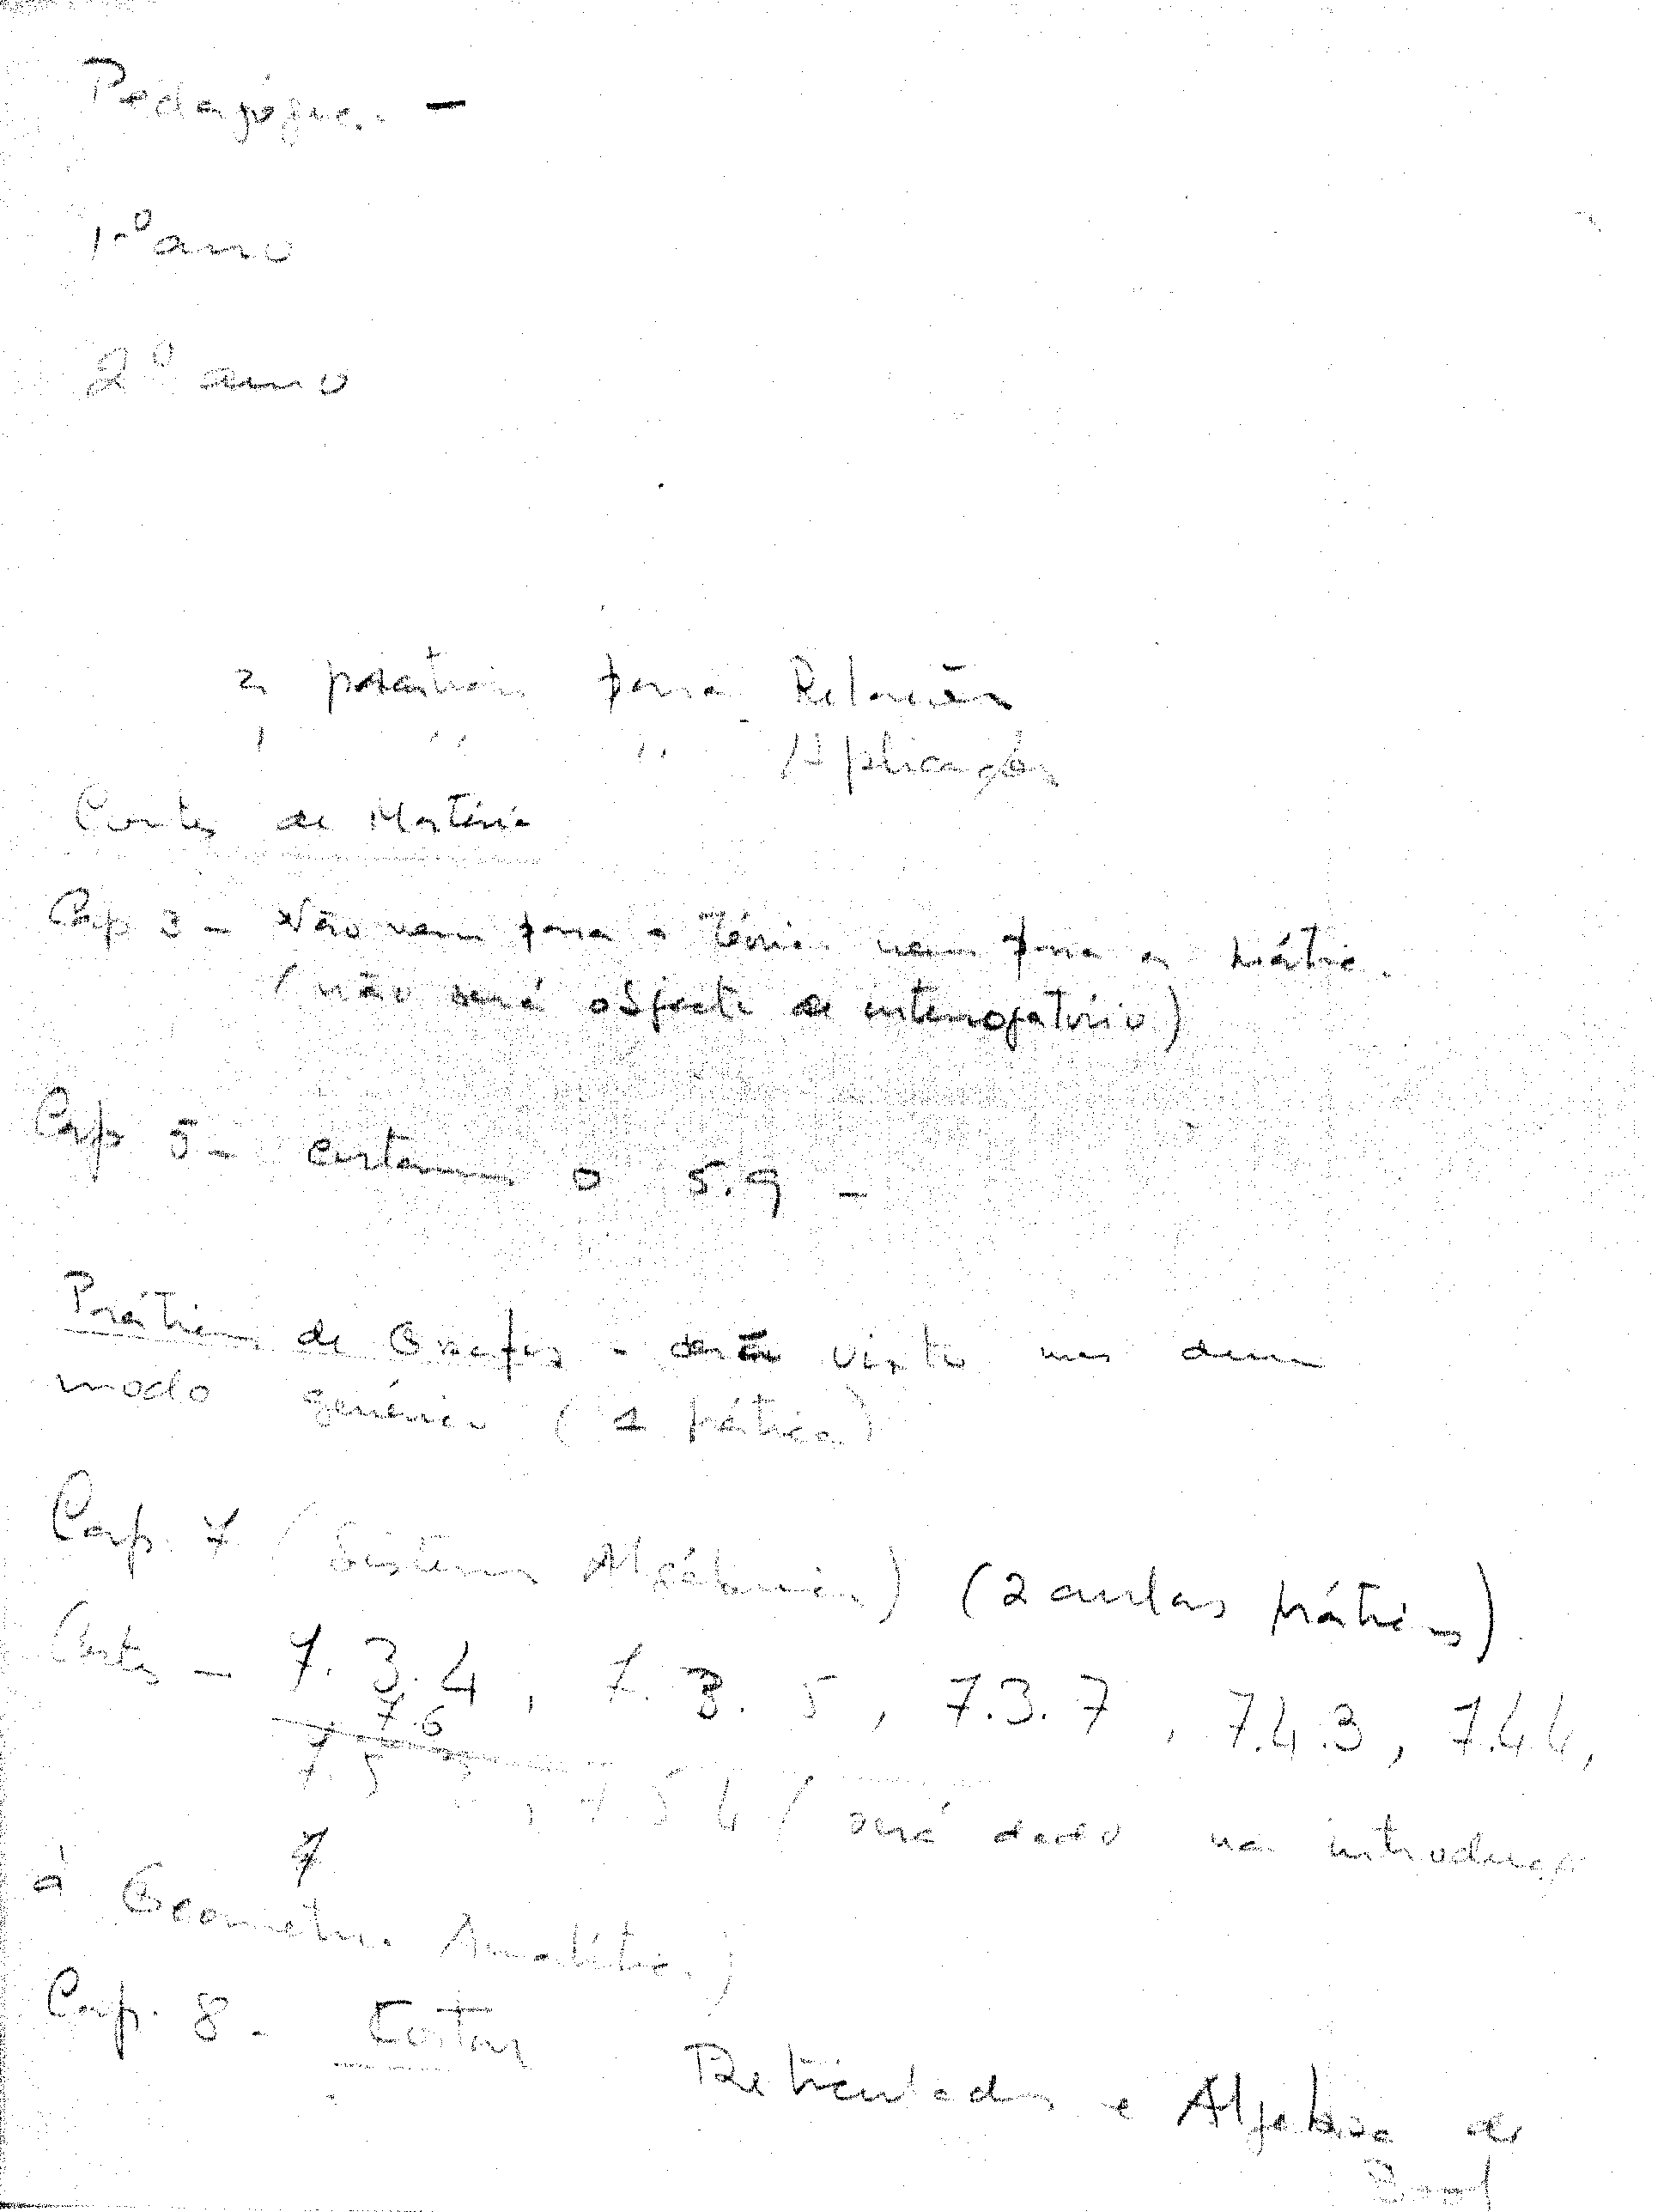 Pedagógica -
1.º ano
2º ano
2 práticas para Relações
1 " " Aplicações
Cortes de Matéria
Cap 3 - Não vem para a teórica nem para a prática.
(não será objecto de interrogatório)
Cap 5 - cortamos o 5.9 -
Práticas de Grafos - serão visto mas dum
modo genérico (1 prática)
Cap. 7 (Sistemas Algébricos) (2 aulas práticas)
Cortes - 7.3.4, 7.3.5, 7.3.7, 7.4.3, 7.4.4,
7.6
7.5 , 7.5.4 (será dado na introdução
à Geometria Analítica)
Cap. 8 - Cortar Reticulados e Algebra de
Bool